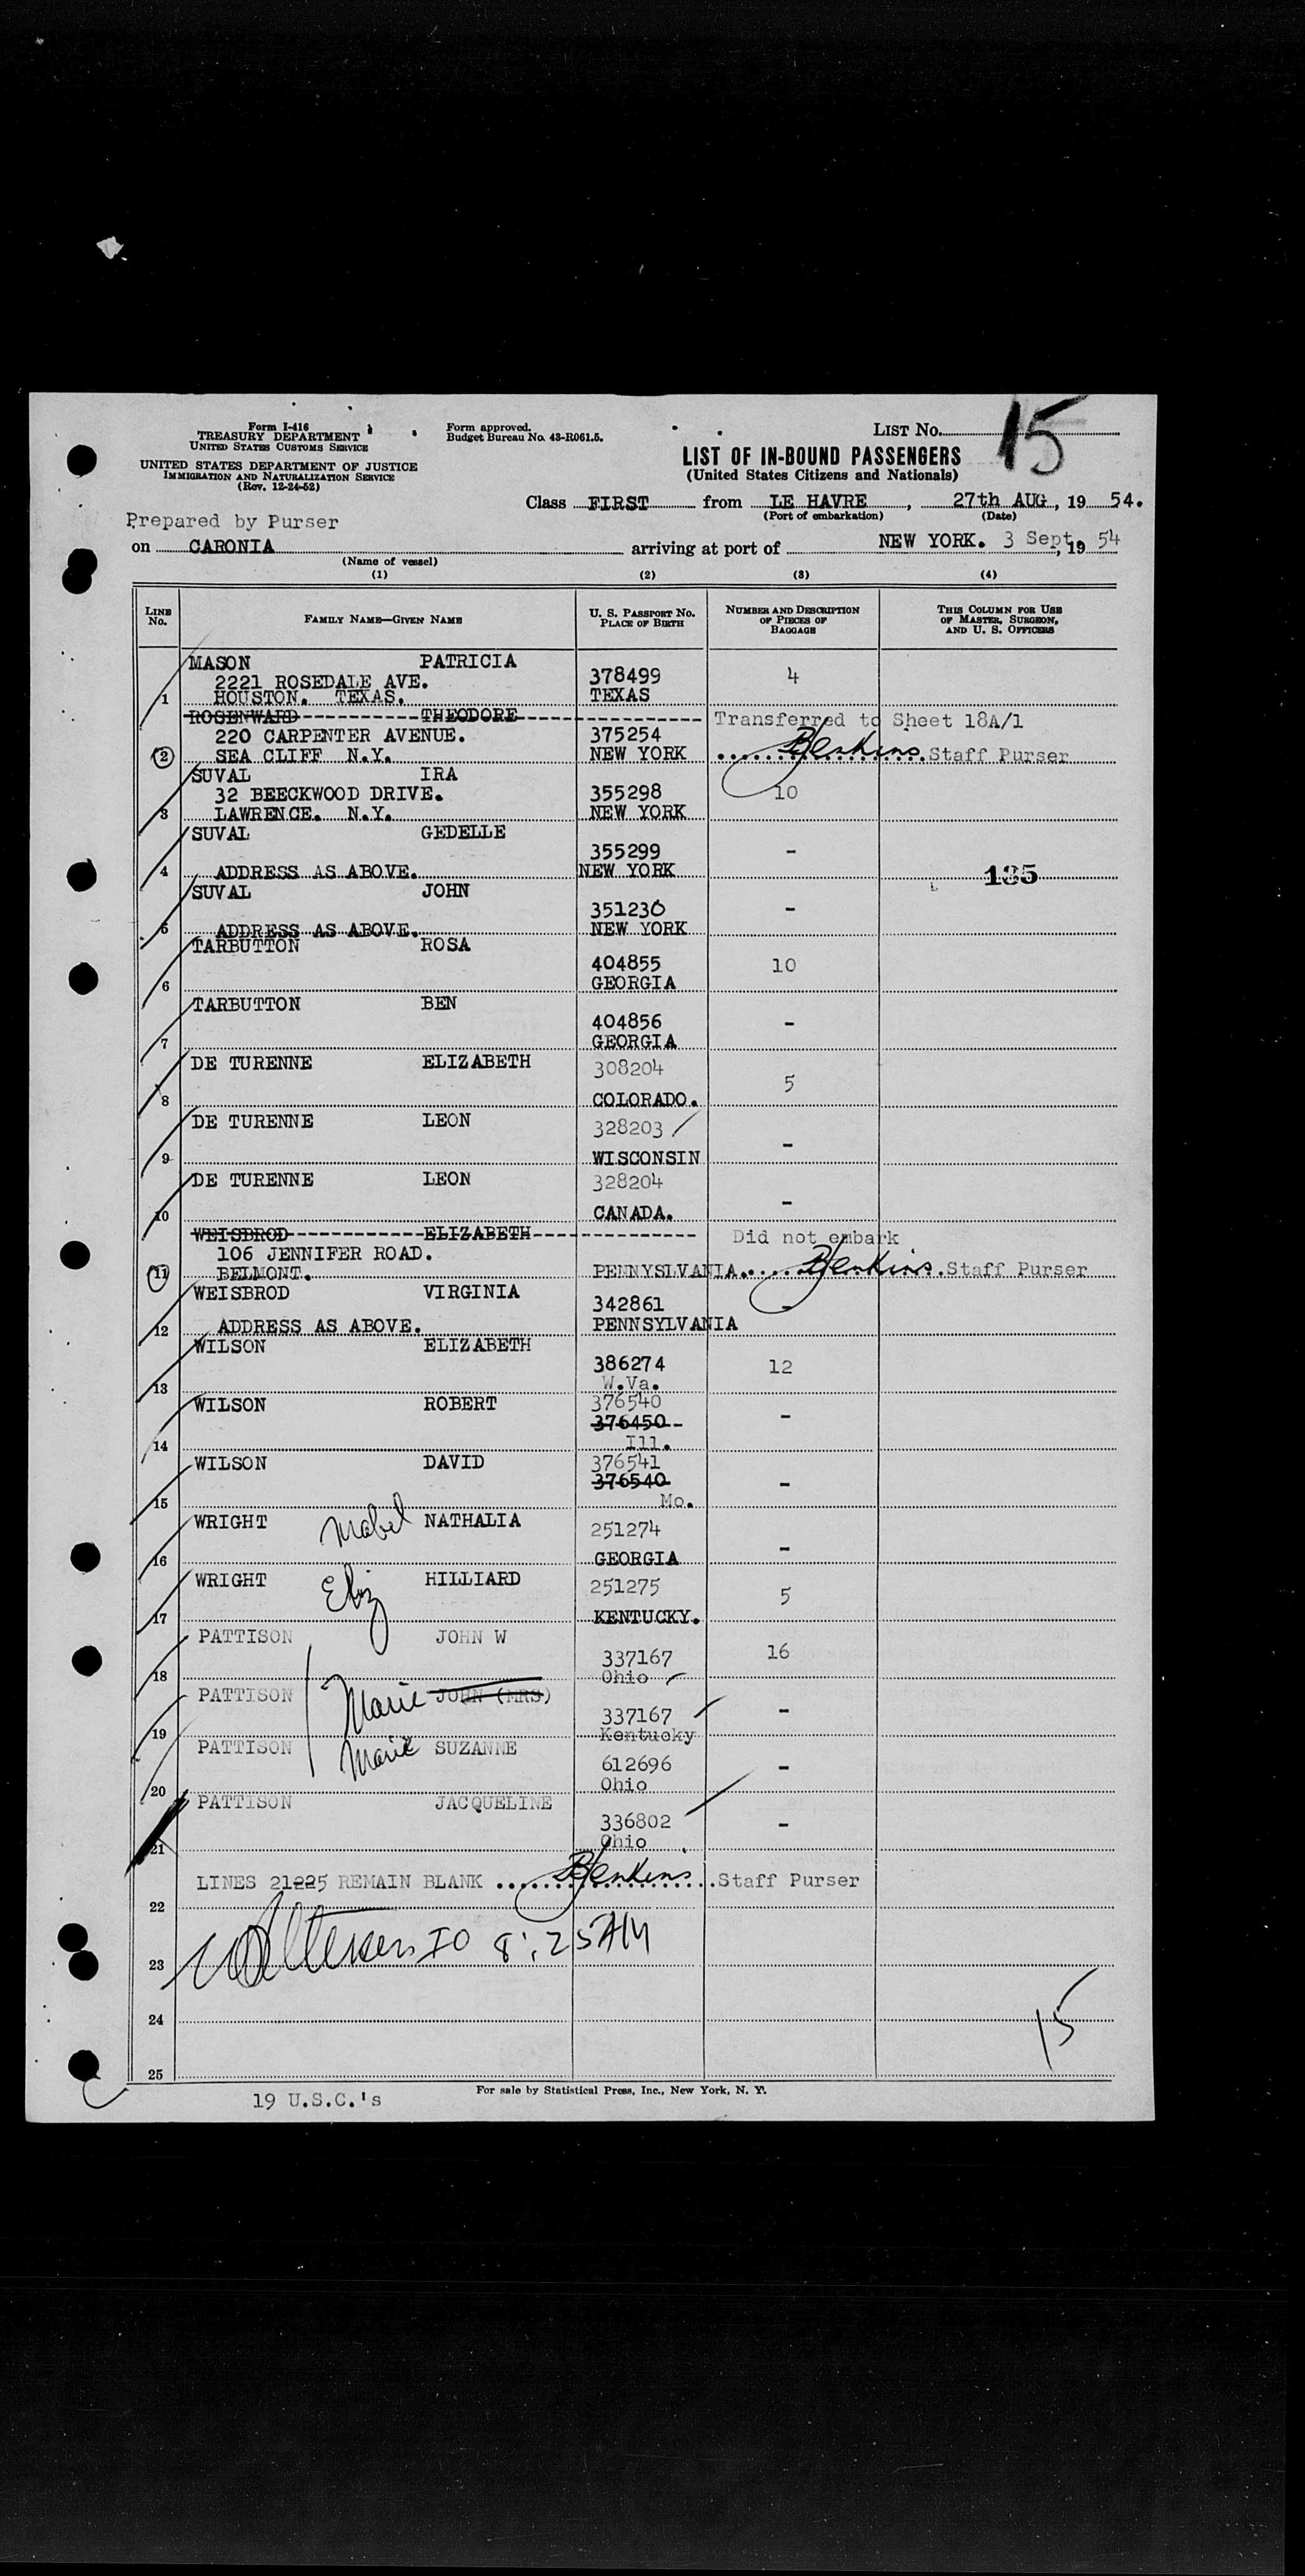 Form I-416
TREASURY DEPARTMENT
UNITED STATES CUSTOMS SERVICE
UNITED STATES DEPARTMENT OF JUSTICE
IMMIGRATION AND NATURALIZATION SERVICE
(Rev. 12-24-52)
Form approved.
Budget Bureau No. 43-R061.5.
LIST No. 15
LIST OF IN-BOUND PASSENGERS
(United States Citizens and Nationals)
Class FIRST from LE HAVRE, 27th AUG, 19 54.
(Port of embarkation) (Date)
Prepared by Purser
on CARONIA arriving at port of NEW YORK. 3 Sept, 19 54
(Name of vessel)
(1) (2) (3) (4)
LINE No. FAMILY NAME—GIVEN NAME U. S. PASSPORT NO. PLACE OF BIRTH NUMBER AND DESCRIPTION OF PIECES OF BAGGAGE THIS COLUMN FOR USE OF MASTER, SURGEON, AND U. S. OFFICERS
MASON PATRICIA
2221 ROSEDALE AVE. 378499 4
1 HOUSTON. TEXAS. TEXAS
ROSENWARD THEODORE Transferred to Sheet 18A/1
220 CARPENTER AVENUE. 375254
2 SEA CLIFF N.Y. NEW YORK BJenkins Staff Purser
SUVAL IRA
32 BEECKWOOD DRIVE. 355298 10
3 LAWRENCE. N.Y. NEW YORK
SUVAL GEDELLE
355299 -
4 ADDRESS AS ABOVE. NEW YORK 135
SUVAL JOHN
351230 -
5 ADDRESS AS ABOVE. NEW YORK
TARBUTTON ROSA
404855 10
6 GEORGIA
TARBUTTON BEN
404856 -
7 GEORGIA
DE TURENNE ELIZABETH
308204 5
8 COLORADO.
DE TURENNE LEON
328203 -
9 WISCONSIN
DE TURENNE LEON
328204 -
10 CANADA.
WEISBROD ELIZABETH Did not embark
106 JENNIFER ROAD.
11 BELMONT. PENNYSLVANIA. BJenkins Staff Purser
WEISBROD VIRGINIA
342861 -
12 ADDRESS AS ABOVE. PENNSYLVANIA
WILSON ELIZABETH
386274 12
13 W.Va.
WILSON ROBERT 376540
376450 -
14 Ill.
WILSON DAVID 376541
376540 -
15 Mo.
WRIGHT Mabel NATHALIA
251274 -
16 GEORGIA
WRIGHT Eliz HILLIARD
251275 5
17 KENTUCKY.
PATTISON JOHN W
337167 16
18 Ohio
PATTISON Marie JOHN (MRS)
337167 -
19 Kentucky
PATTISON Marie SUZANNE
612696 -
20 Ohio
PATTISON JACQUELINE
336802 -
21 Ohio
LINES 2125 REMAIN BLANK BJenkins Staff Purser
22
IO 8:25 AM
23
24 15
25
For sale by Statistical Press, Inc., New York, N. Y.
19 U.S.C.'s